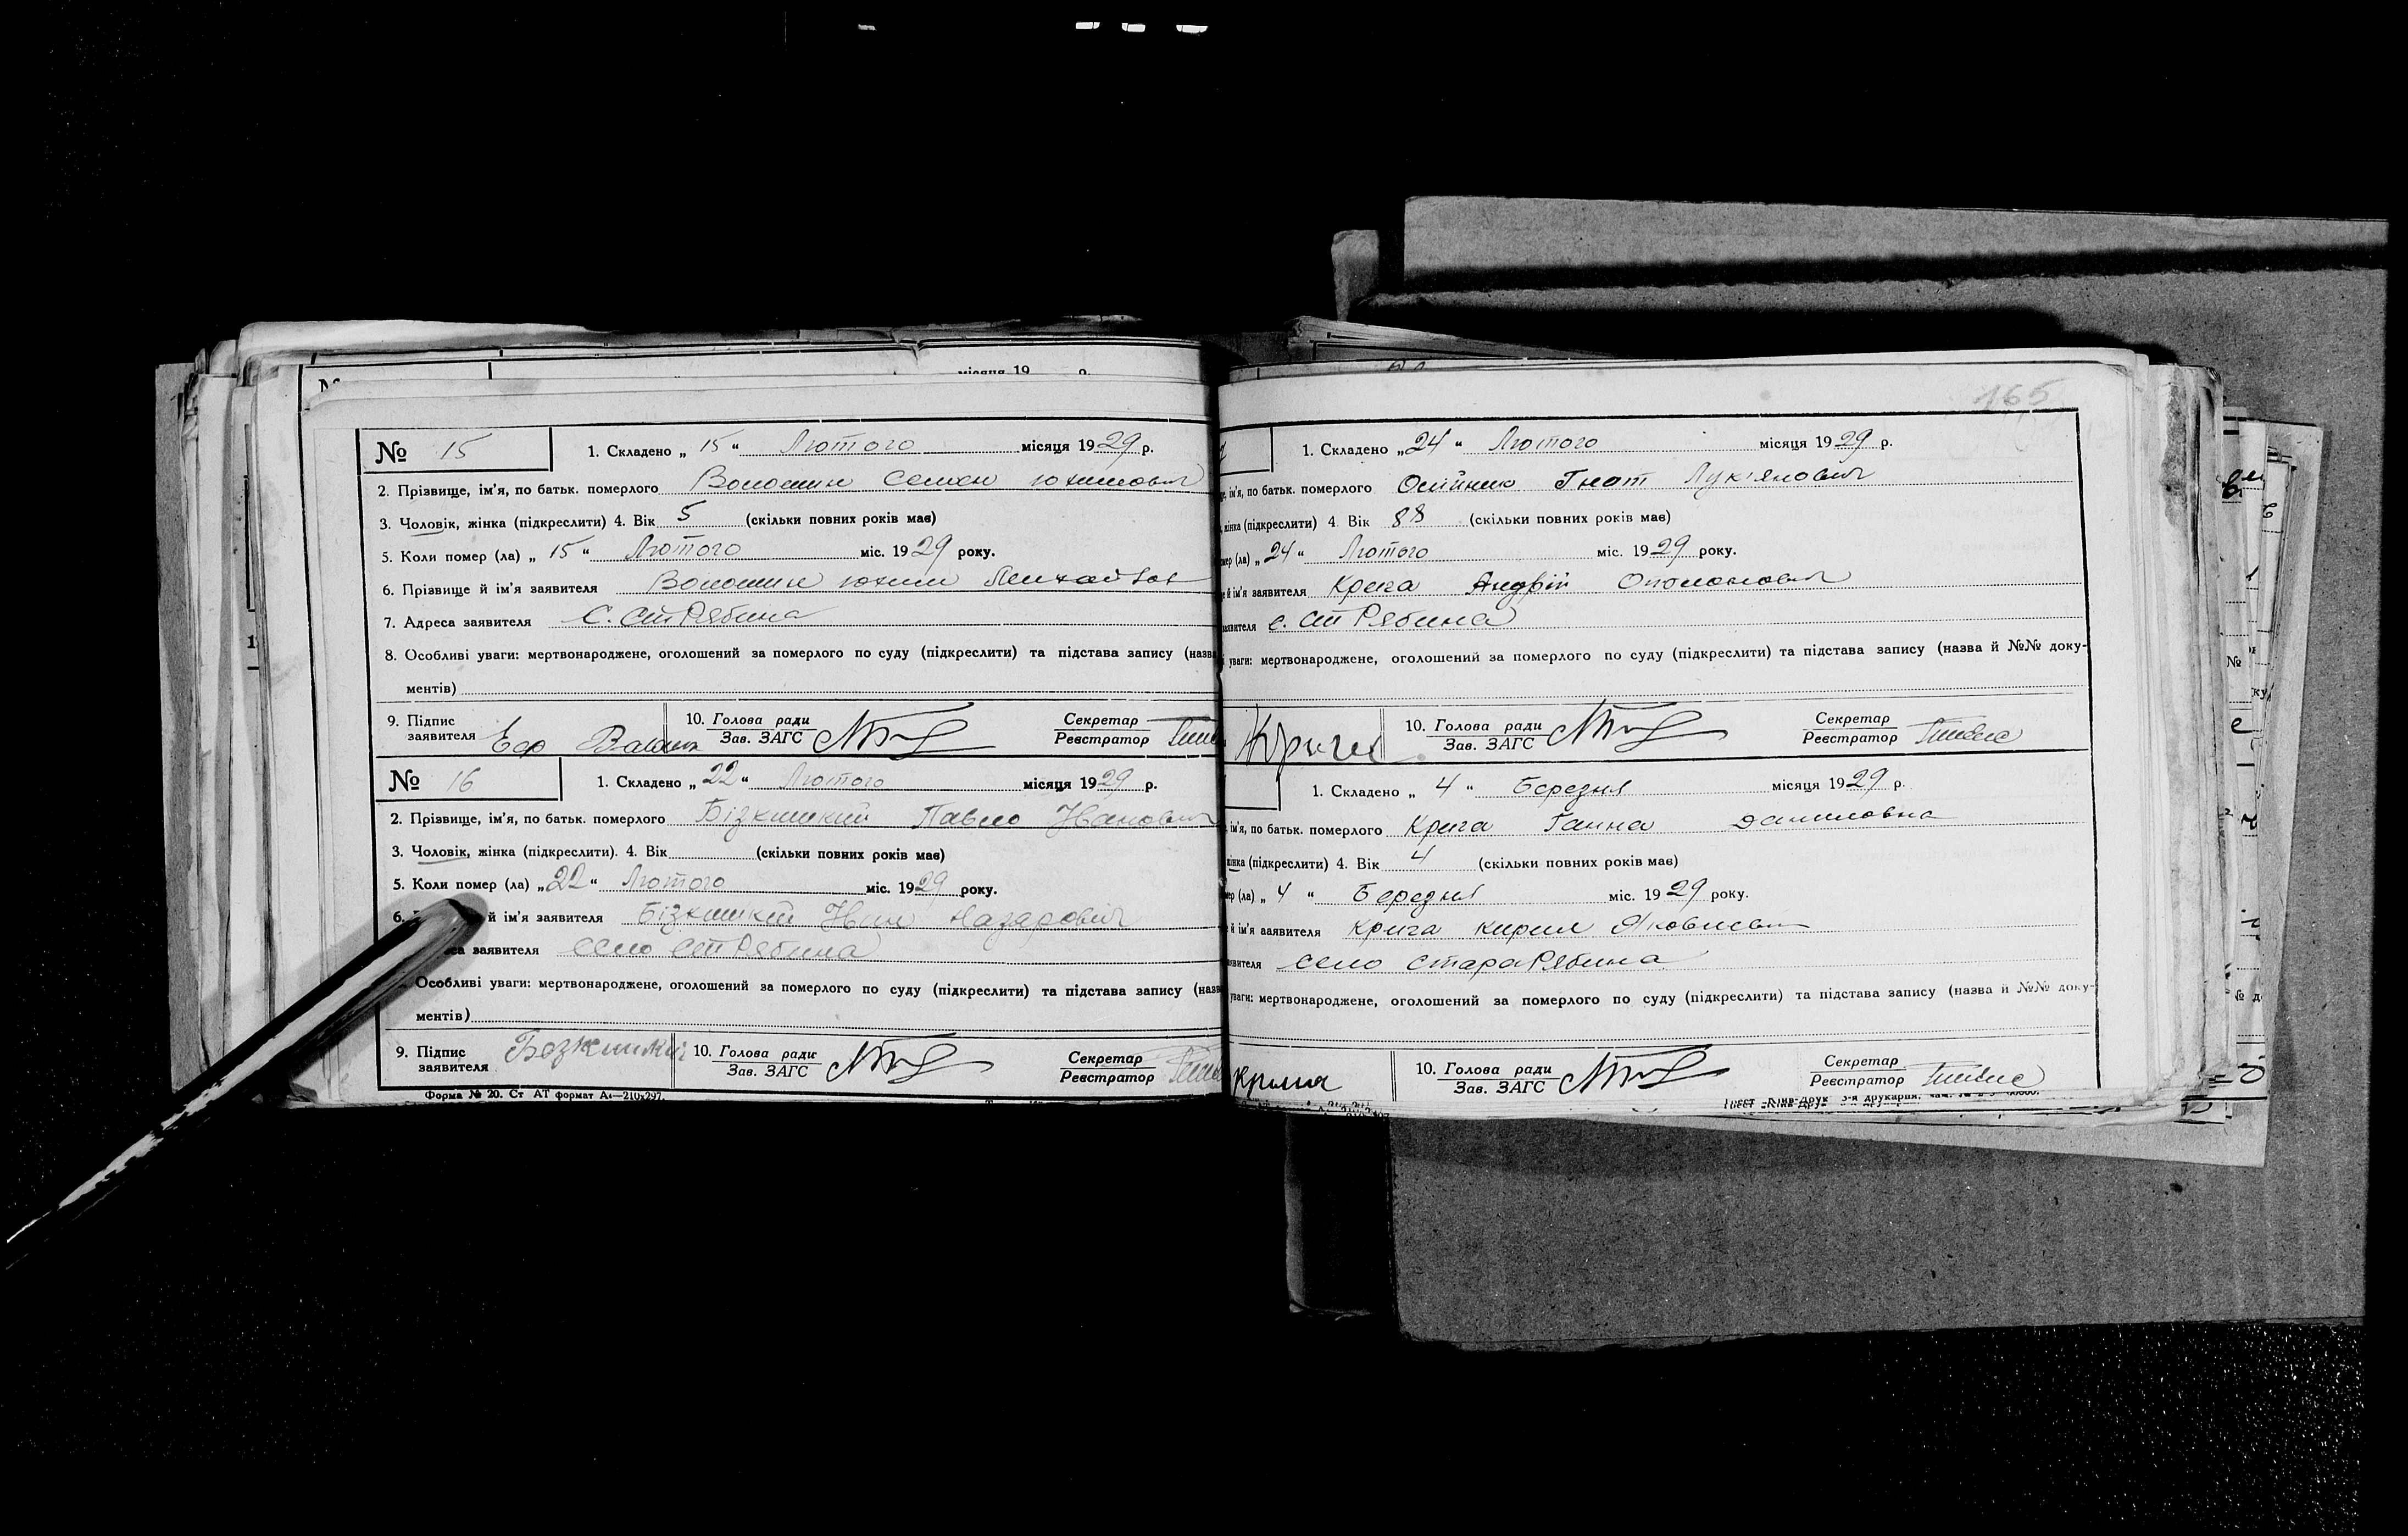 місяця 19 р.
№ 15 1. Складено „ 15 “ Лютого місяця 1929 р.
2. Прізвище, ім'я, по батьк. померлого Волошин Семен Юхимович
3. Чоловік, жінка (підкреслити) 4. Вік 5 (скільки повних років має)
5. Коли помер (ла) „ 15 “ Лютого міс. 1929 року.
6. Прізвище й ім'я заявителя Волошин Юхим
7. Адреса заявителя С. Ст Рябина
8. Особливі уваги: мертвонароджене, оголошений за померлого по суду (підкреслити) та підстава запису (назва
ментів)
9. Підпис заявителя 10. Голова ради Зав. ЗАГС Секретар Реєстратор
№ 16 1. Складено „ 22 “ Лютого місяця 1929 р.
2. Прізвище, ім'я, по батьк. померлого Бізкишкий Павло Іванович
3. Чоловік, жінка (підкреслити). 4. Вік (скільки повних років має)
5. Коли помер (ла) „ 22 “ Лютого міс. 1929 року.
6. й ім'я заявителя Бізкишкий Іван Назарович
заявителя село Ст Рябина
Особливі уваги: мертвонароджене, оголошений за померлого по суду (підкреслити) та підстава запису (назв
ментів)
9. Підпис заявителя 10. Голова ради Зав. ЗАГС Секретар Реєстратор
Форма № 20. Ст АТ формат А4—210x297.
165
1. Складено „ 24 “ Лютого місяця 1929 р.
ім'я, по батьк. померлого Олійник Гнат Лук'янович
жінка (підкреслити) 4. Вік 88 (скільки повних років має)
(ла) „ 24 “ Лютого міс. 1929 року.
й ім'я заявителя Крига Андрій
заявителя с. Ст Рябина
уваги: мертвонароджене, оголошений за померлого по суду (підкреслити) та підстава запису (назва й №№ доку-
10. Голова ради Зав. ЗАГС Секретар Реєстратор
1. Складено „ 4 “ Березня місяця 1929 р.
ім'я, по батьк. померлого Крига Ганна Даниловна
жінка (підкреслити) 4. Вік 4 (скільки повних років має)
(ла) „ 4 “ Березня міс. 1929 року.
й ім'я заявителя Крига Кирил Яковлевич
заявителя село Стара Рябина
уваги: мертвонароджене, оголошений за померлого по суду (підкреслити) та підстава запису (назва й №№ доку-
10. Голова ради Зав. ЗАГС Секретар Реєстратор